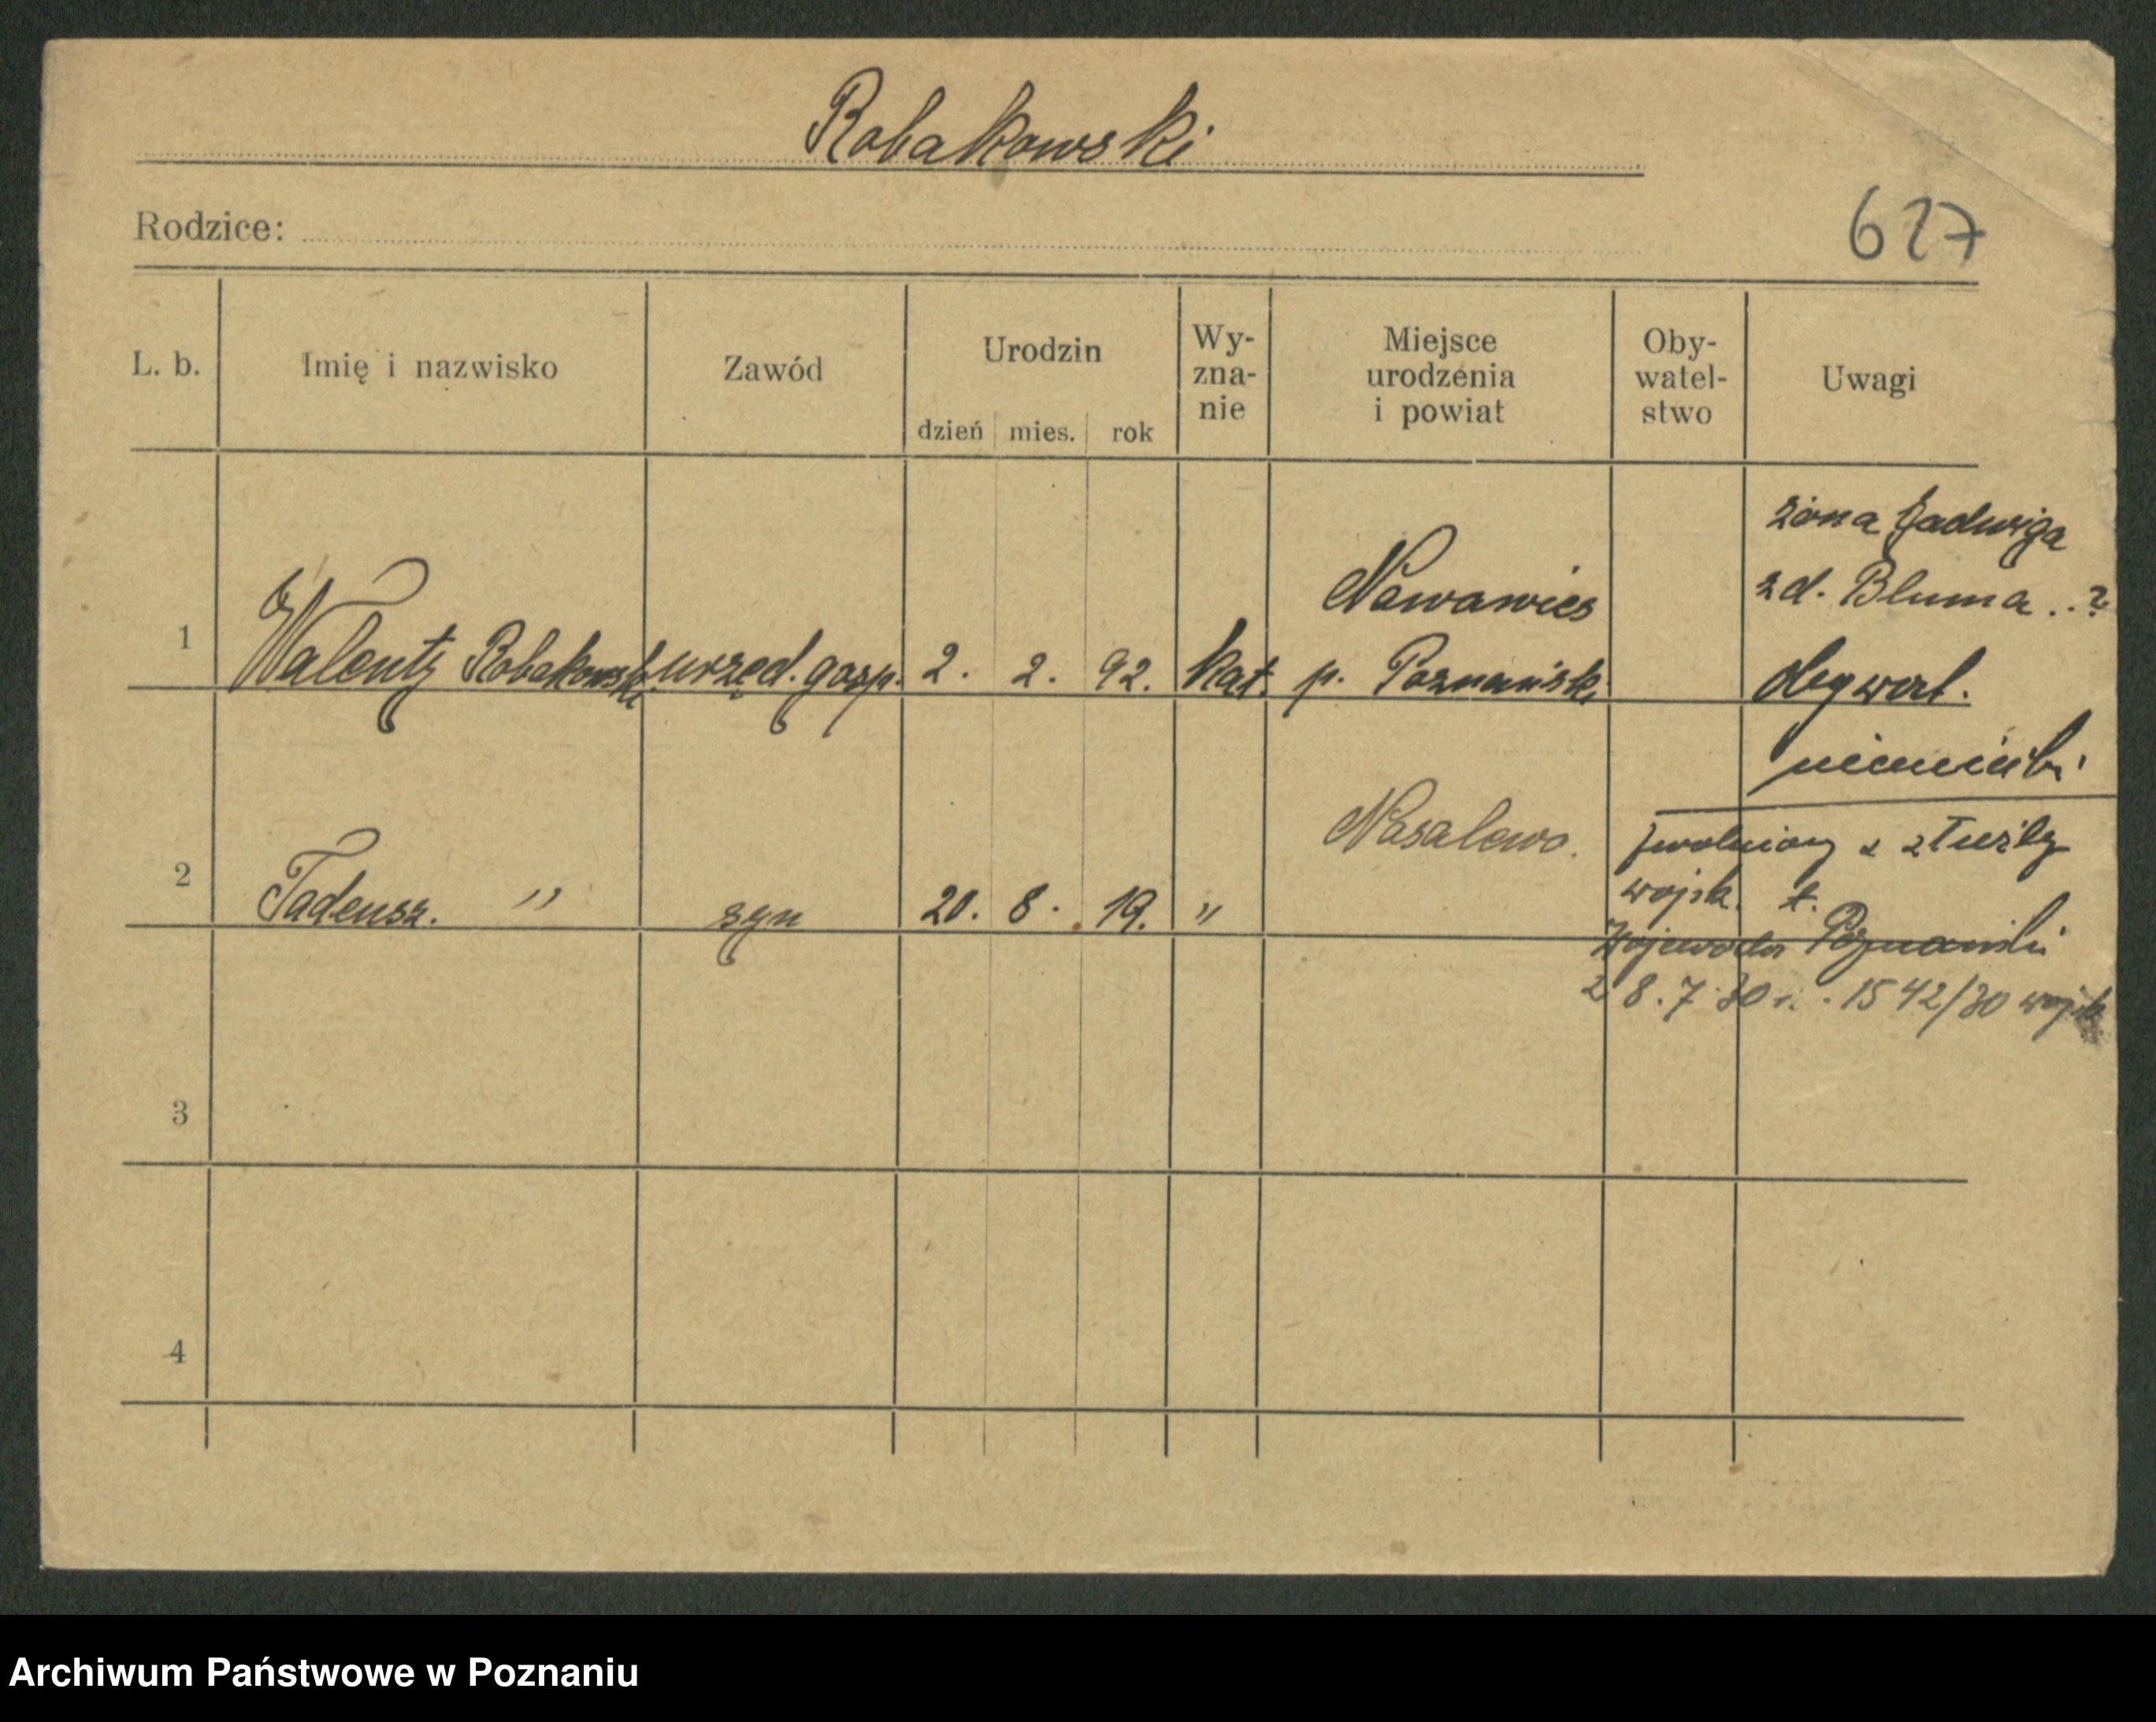 Robakowski
Rodzice:
627
L. b.
Imię i nazwisko
Zawód
Urodzin
dzień mies. rok
Wy-
zna-
nie
Miejsce
urodzenia
i powiat
Oby-
watel-
stwo
Uwagi
1 Walenty Robakowski urzęd. gosp. 2. 2. 92. kat. Nowawies
p. Poznański
żona Jadwiga
zd. Bluma..?
obywat.
niemiecki
2 Tadeusz. " syn 20. 8. 19. " Nosalewo.
zwolniony z służby
wojsk.
Wojewoda Poznański
z 8.7.30 r. 1542/30 wojsk
3
4
Archiwum Państwowe w Poznaniu